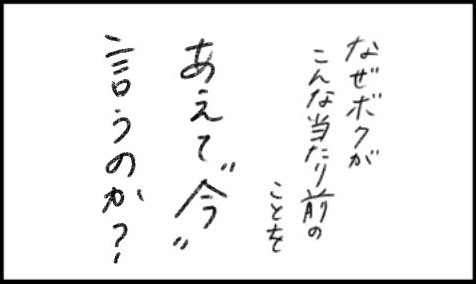 なぜボクが
こんな当たり前の
ことを
あえて〝今〟
言うのか？